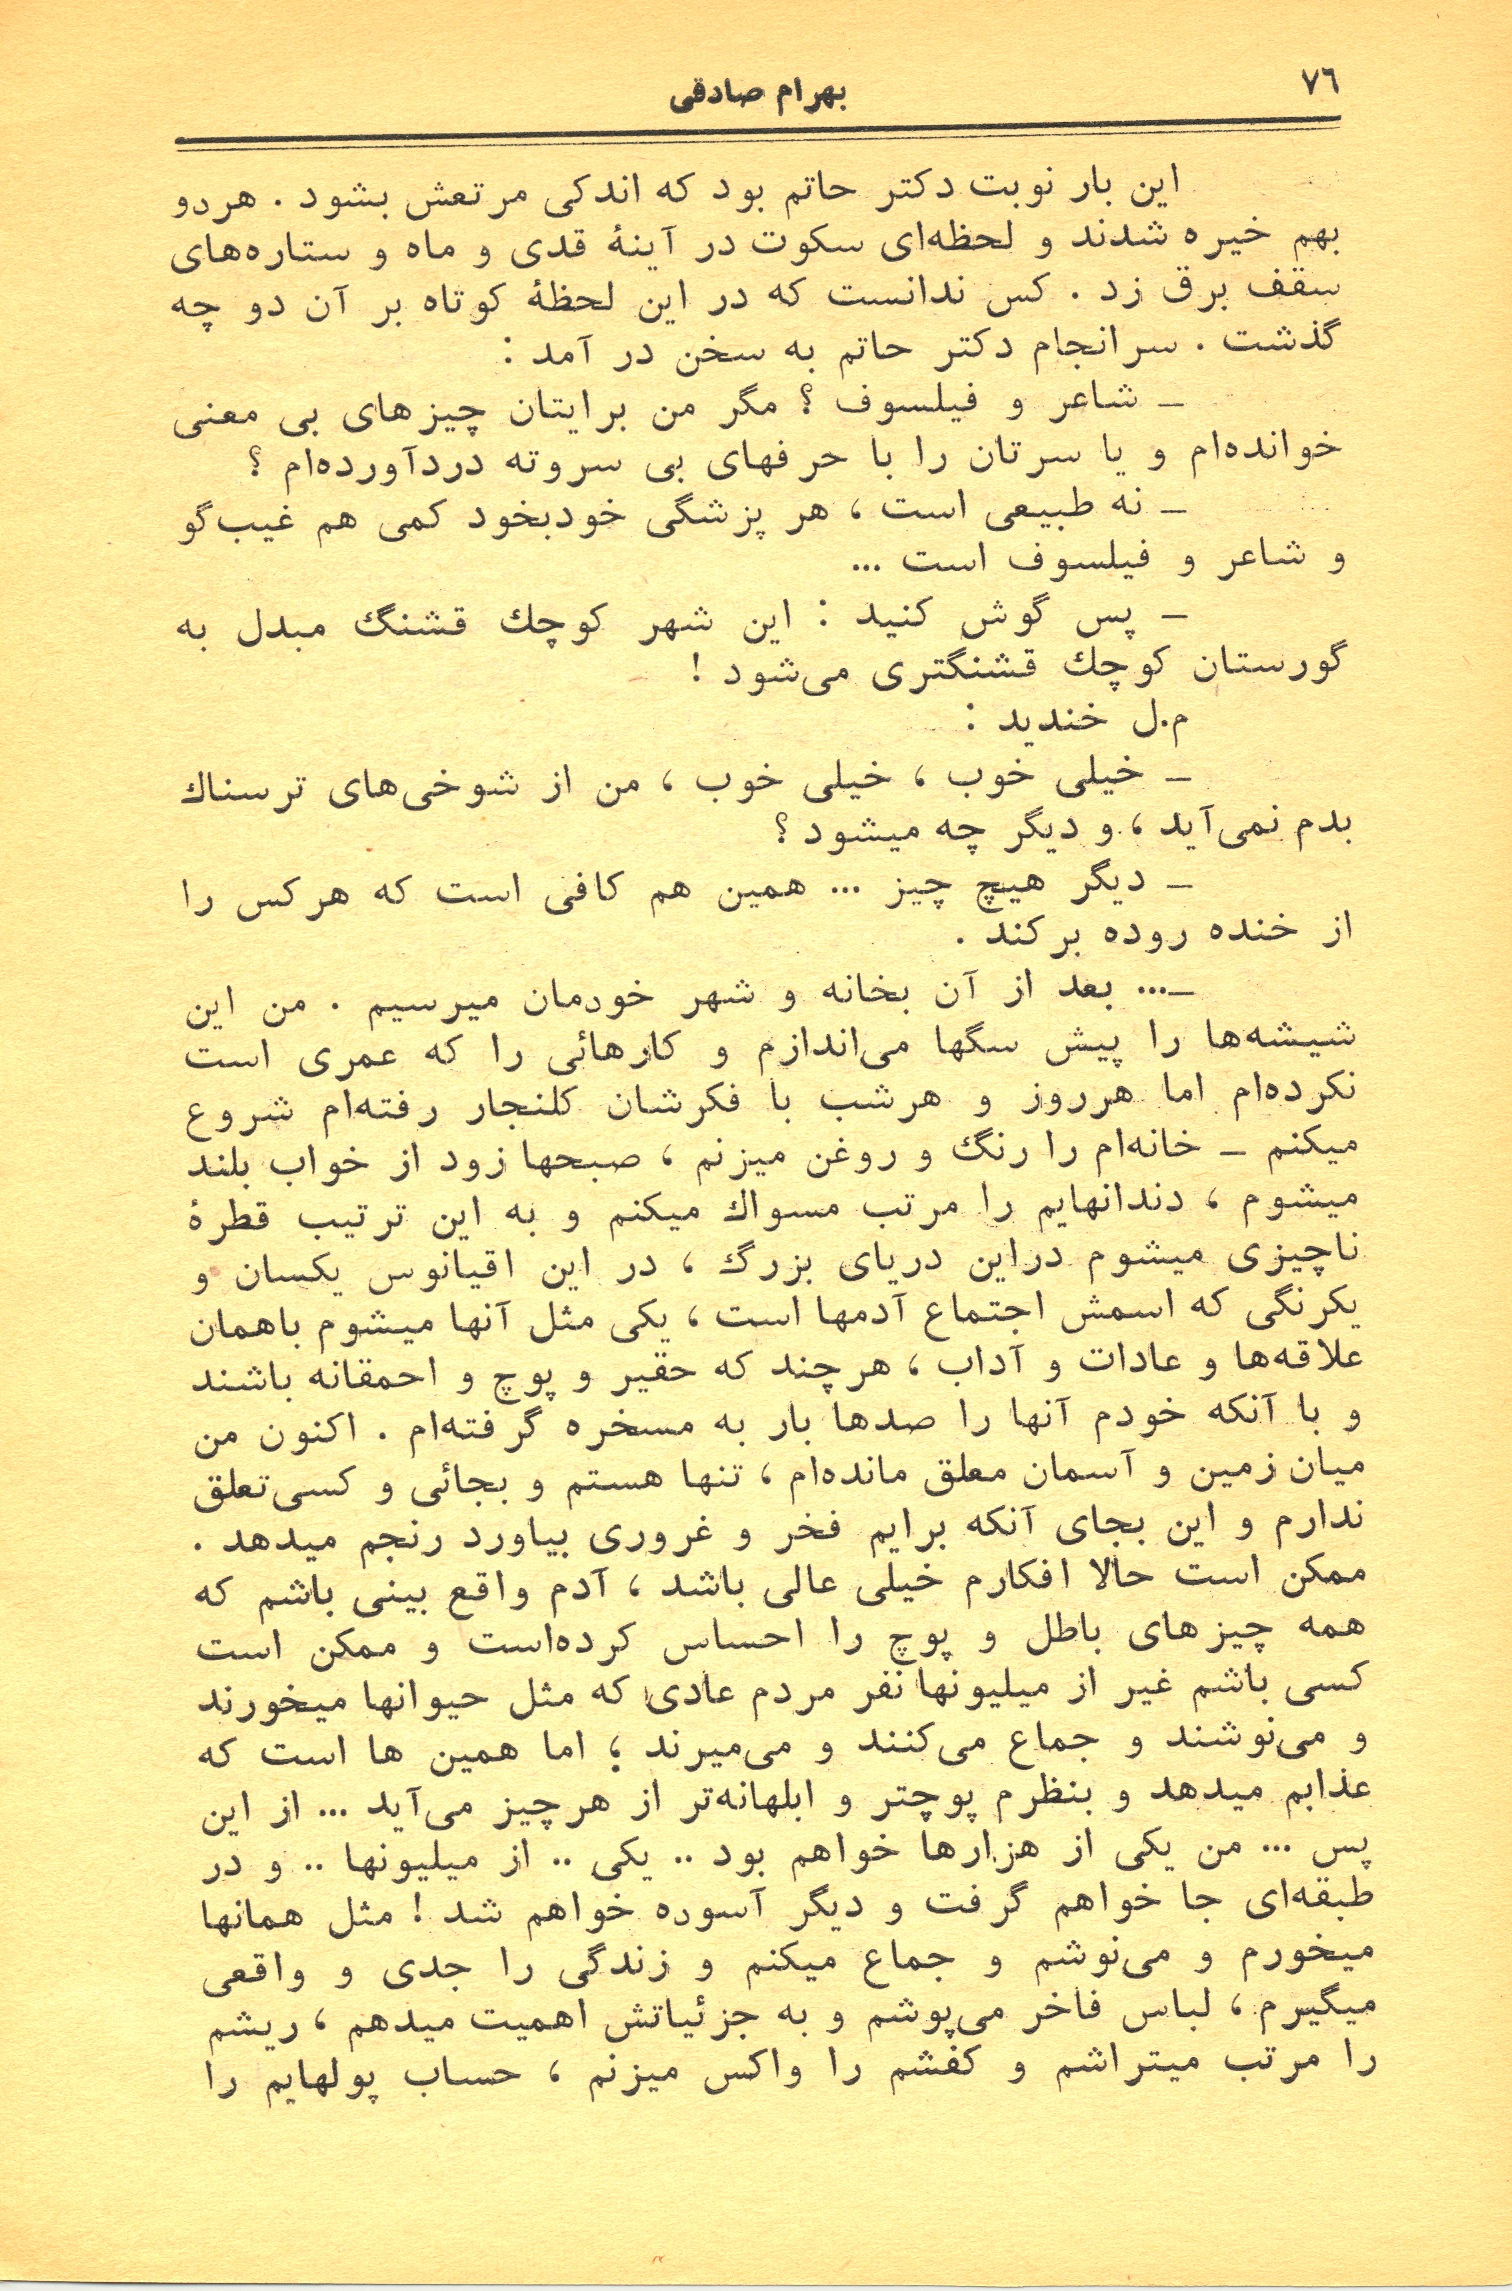 ٧٦
بهرام صادقی
این بار نوبت دکتر حاتم بود که اندکی مرتعش بشود . هردو
بهم خیره شدند و لحظه‌ای سکوت در آینهٔ قدی و ماه و ستاره‌های
سقف برق زد . کس ندانست که در این لحظهٔ کوتاه بر آن دو چه
گذشت . سرانجام دکتر حاتم به سخن در آمد :
ـ شاعر و فیلسوف ؟ مگر من برایتان چیزهای بی معنی
خوانده‌ام و یا سرتان را با حرفهای بی سروته دردآورده‌ام ؟
ـ نه طبیعی است ، هر پزشگی خودبخود کمی هم غیب‌گو
و شاعر و فیلسوف است ...
ـ پس گوش کنید : این شهر کوچك قشنگ مبدل به
گورستان کوچك قشنگتری می‌شود !
م.ل خندید :
ـ خیلی خوب ، خیلی خوب ، من از شوخی‌های ترسناك
بدم نمی‌آید ، و دیگر چه میشود ؟
ـ دیگر هیچ چیز ... همین هم کافی است که هرکس را
از خنده روده برکند .
ـ... بعد از آن بخانه و شهر خودمان میرسیم . من این
شیشه‌ها را پیش سگها می‌اندازم و کارهائی را که عمری است
نکرده‌ام اما هرروز و هرشب با فکرشان کلنجار رفته‌ام شروع
میکنم ـ خانه‌ام را رنگ و روغن میزنم ، صبحها زود از خواب بلند
میشوم ، دندانهایم را مرتب مسواك میکنم و به این ترتیب قطرهٔ
ناچیزی میشوم دراین دریای بزرگ ، در این اقیانوس یکسان و
یکرنگی که اسمش اجتماع آدمها است ، یکی مثل آنها میشوم باهمان
علاقه‌ها و عادات و آداب ، هرچند که حقیر و پوچ و احمقانه باشند
و با آنکه خودم آنها را صدها بار به مسخره گرفته‌ام . اکنون من
میان زمین و آسمان معلق مانده‌ام ، تنها هستم و بجائی و کسی تعلق
ندارم و این بجای آنکه برایم فخر و غروری بیاورد رنجم میدهد .
ممکن است حالا افکارم خیلی عالی باشد ، آدم واقع بینی باشم که
همه چیزهای باطل و پوچ را احساس کرده‌است و ممکن است
کسی باشم غیر از میلیونها نفر مردم عادی که مثل حیوانها میخورند
و می‌نوشند و جماع می‌کنند و می‌میرند ؛ اما همین ها است که
عذابم میدهد و بنظرم پوچتر و ابلهانه‌تر از هرچیز می‌آید ... از این
پس ... من یکی از هزارها خواهم بود .. یکی .. از میلیونها .. و در
طبقه‌ای جا خواهم گرفت و دیگر آسوده خواهم شد ! مثل همانها
میخورم و می‌نوشم و جماع میکنم و زندگی را جدی و واقعی
میگیرم ، لباس فاخر می‌پوشم و به جزئیاتش اهمیت میدهم ، ریشم
را مرتب میتراشم و کفشم را واکس میزنم ، حساب پولهایم را